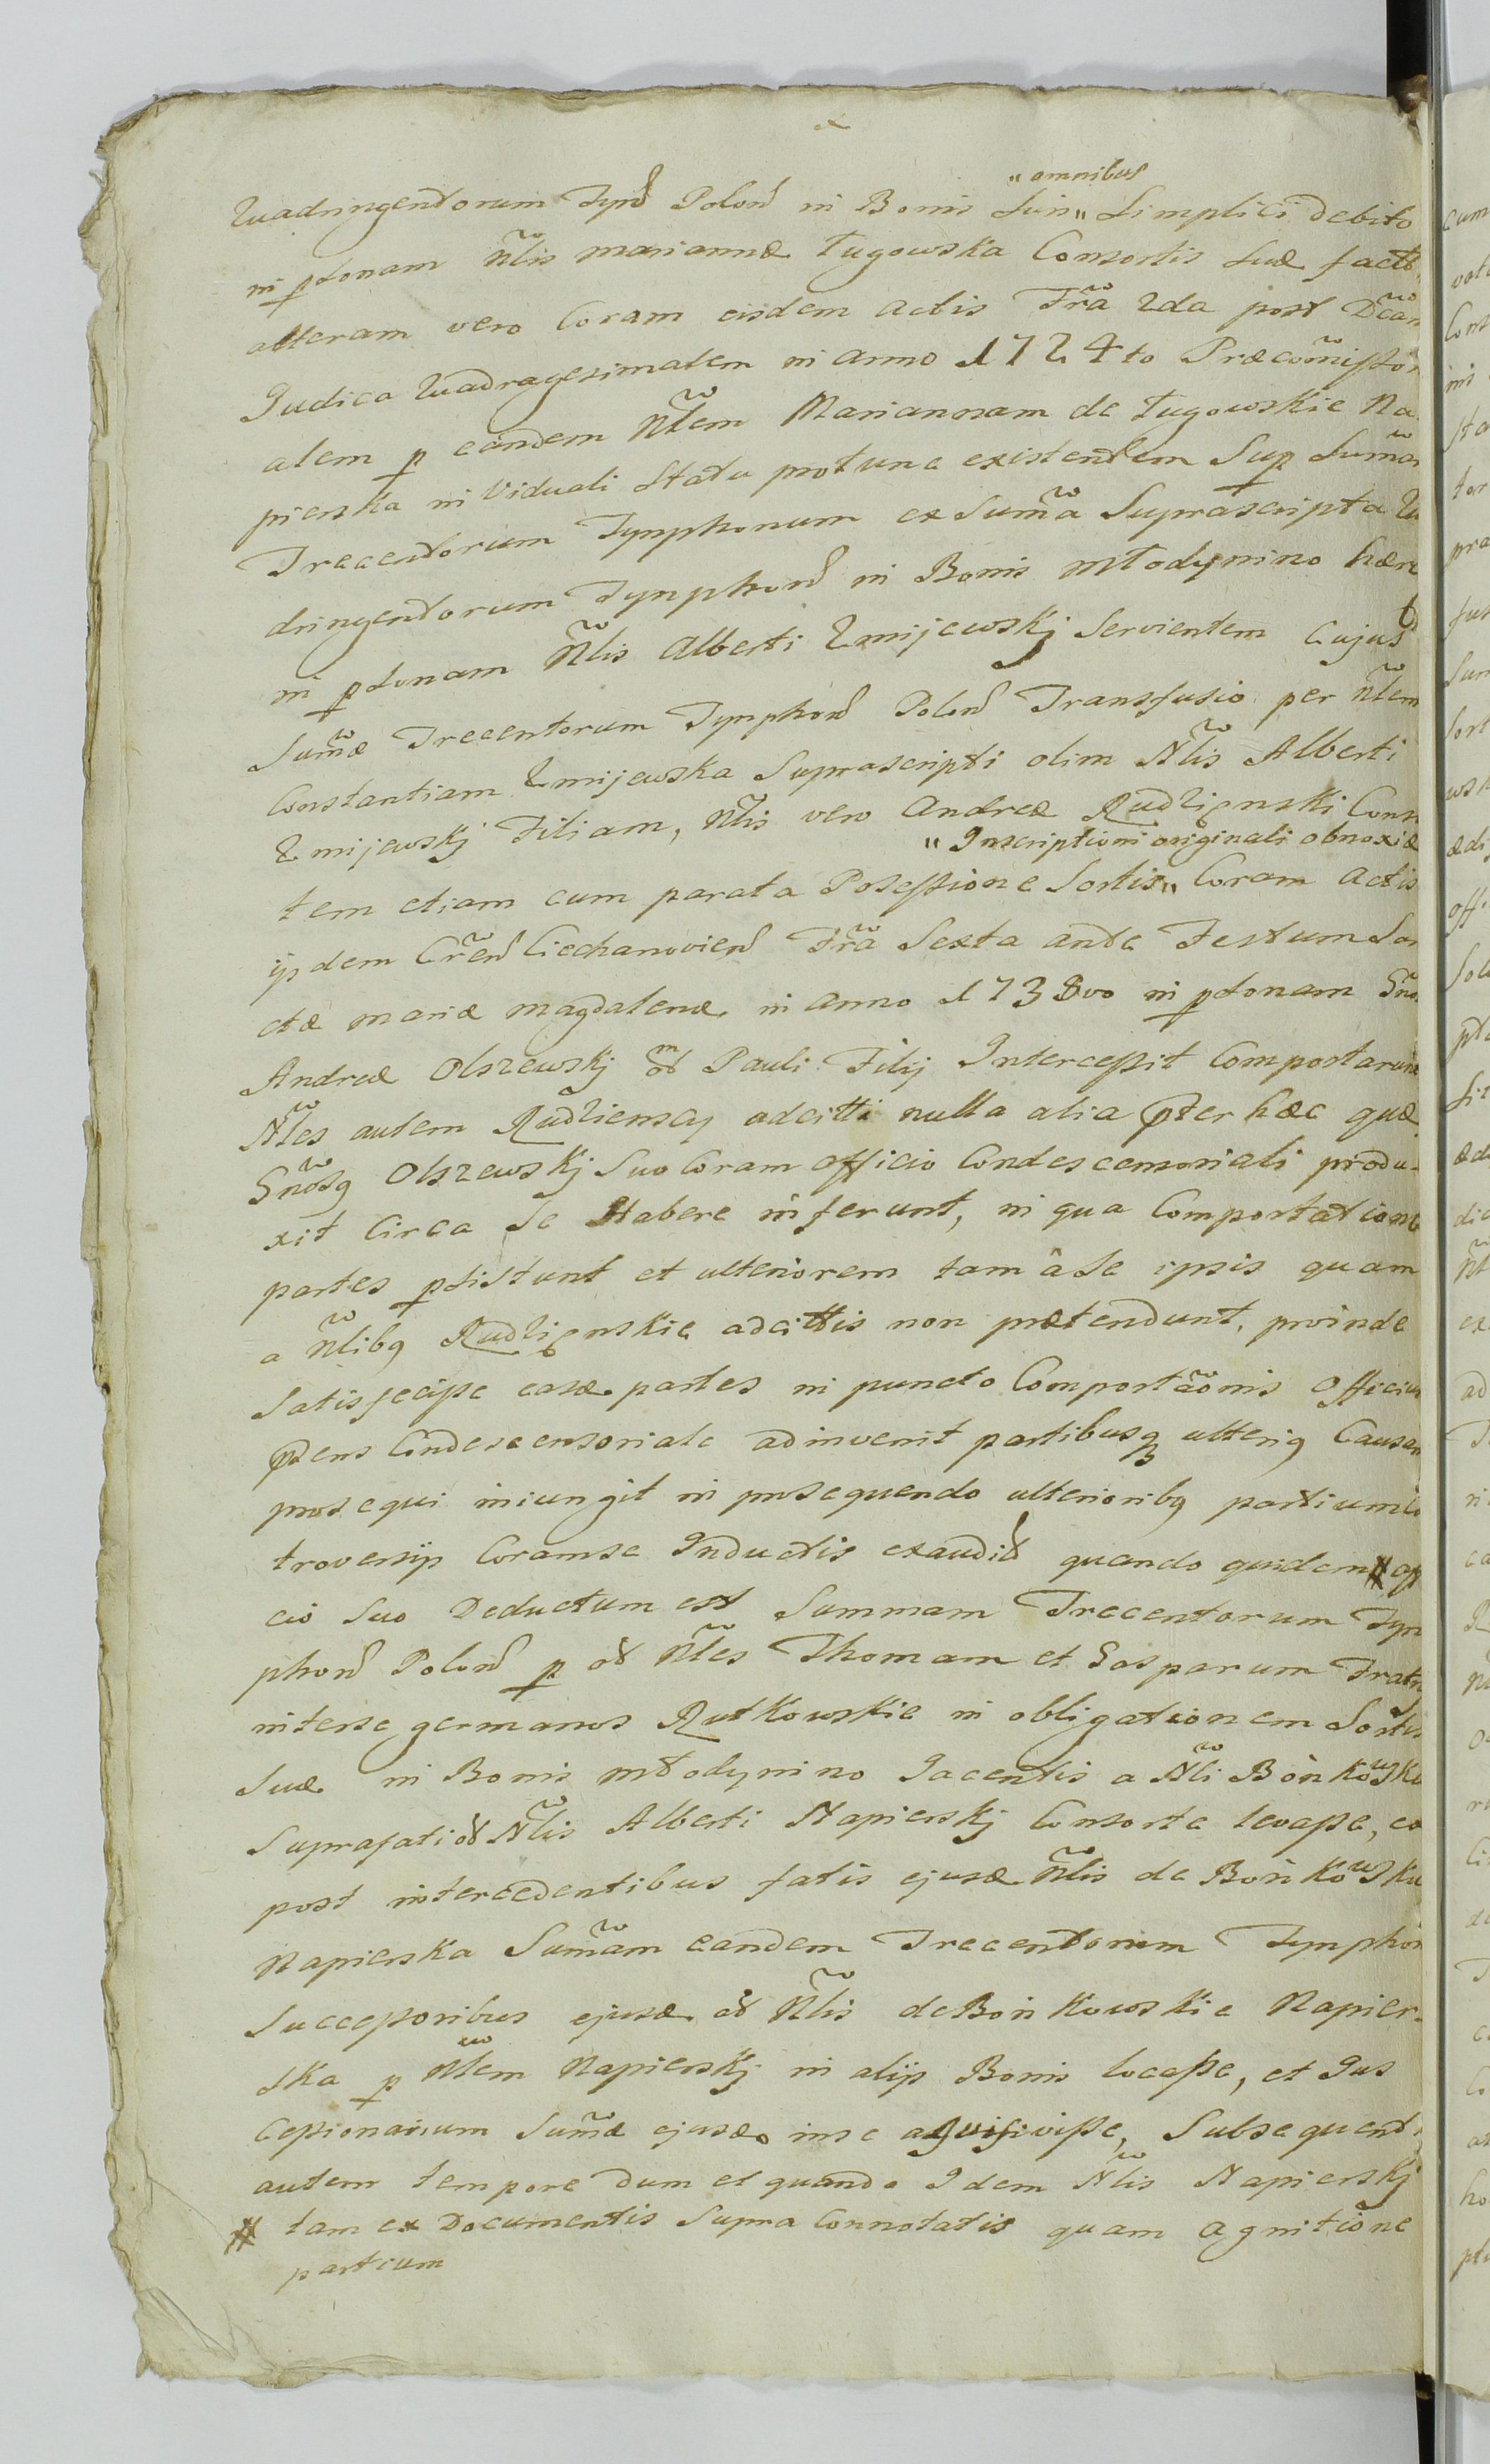 "omnibus
Quadringentorum Tynd Polond in Bonis Suis" Simplici debito
in psonam Nlis Mariannæ Ługowska Consortis Suæ fact
alteram vero Coram eisdem Actis Fra 2da post Dcam
Judica Quadragesimalem in Anno 1724to Præcomisso
alem p eandem Nlem Mariannam de Ługowskie Na
pierska in Viduali Statu protunc existentem Sup Summa
Trecentorum Tynphonum ex Summa Suprascripta Qu
dringentorum Tynphond in Bonis Młodynino hær
in psonam Nlis Alberti Zmijewskj Servientem Cujus
Summæ Trecentorum Tynphond Polond Transfusio per Nlem
Constantiam Zmijewska Suprascripti olim Nlis Alberti
Zmijewskj Filiam, Nlis vero Andreæ Rudzięnski Cons
"Inscriptioni originali obnoxiæ
tem etiam cum parata Possessione Sortis" Coram Actis
ijsdem Crend Ciechanoviend Fra Sexta ante Festum San
ctæ Mariæ Magdalenæ in Anno 1738vo in psonam Gnosi
Andreæ Olszewskj od Pauli Filij Intercessit Comportarunt
Nles autem Rudzienscy adcitti nulla alia pter hæc quæ
Gnosq Olszewskj Suo Coram Officio Condescensoriali produ-
xit Circa Se Habere inferunt, in qua Comportatione
partes psistunt et ulteriorem tam â Se ipsis quam
a Nlibq Rudzięnskie adcittis non prætendunt, proinde
Satisfecisse easd. partes in puncto Comportaonis Officium
pdens Condescensoriale adinvenit partibusq ulteriq Causam
prosequi iniungit in prosequendo ulterioribq partium co
troversijs Coram se Inductis exaudid quando quidem # offi
cio Suo Deductum est Summam Trecentorum Tyn
phond Polond p od Nles Thomam et Gasparum Fratre
interse germanos Rutkowskie in obligationem Sortis
Suæ in Bonis Młodynino Jacentis a Nli Bońkowska
Suprafati od Nlis Alberti Napierskj Consorte levasse, ea
post intercedentibus fatis ejusd. Nlis de Bońkowskie
Napierska Summam eandem Trecentorum Tynphon
Successoribus ejusd. od Nlis de Bońkowskie Napier-
ska p Nlem Napierskj in alijs Bonis locasse, et Jus
Cessionarium Summæ ejusd. in se aquisivisse, Subsequenti
autem tempore dum et quando Idem Nlis Napierskj
# tam ex Documentis Supra Connotatis quam agnitione
partium